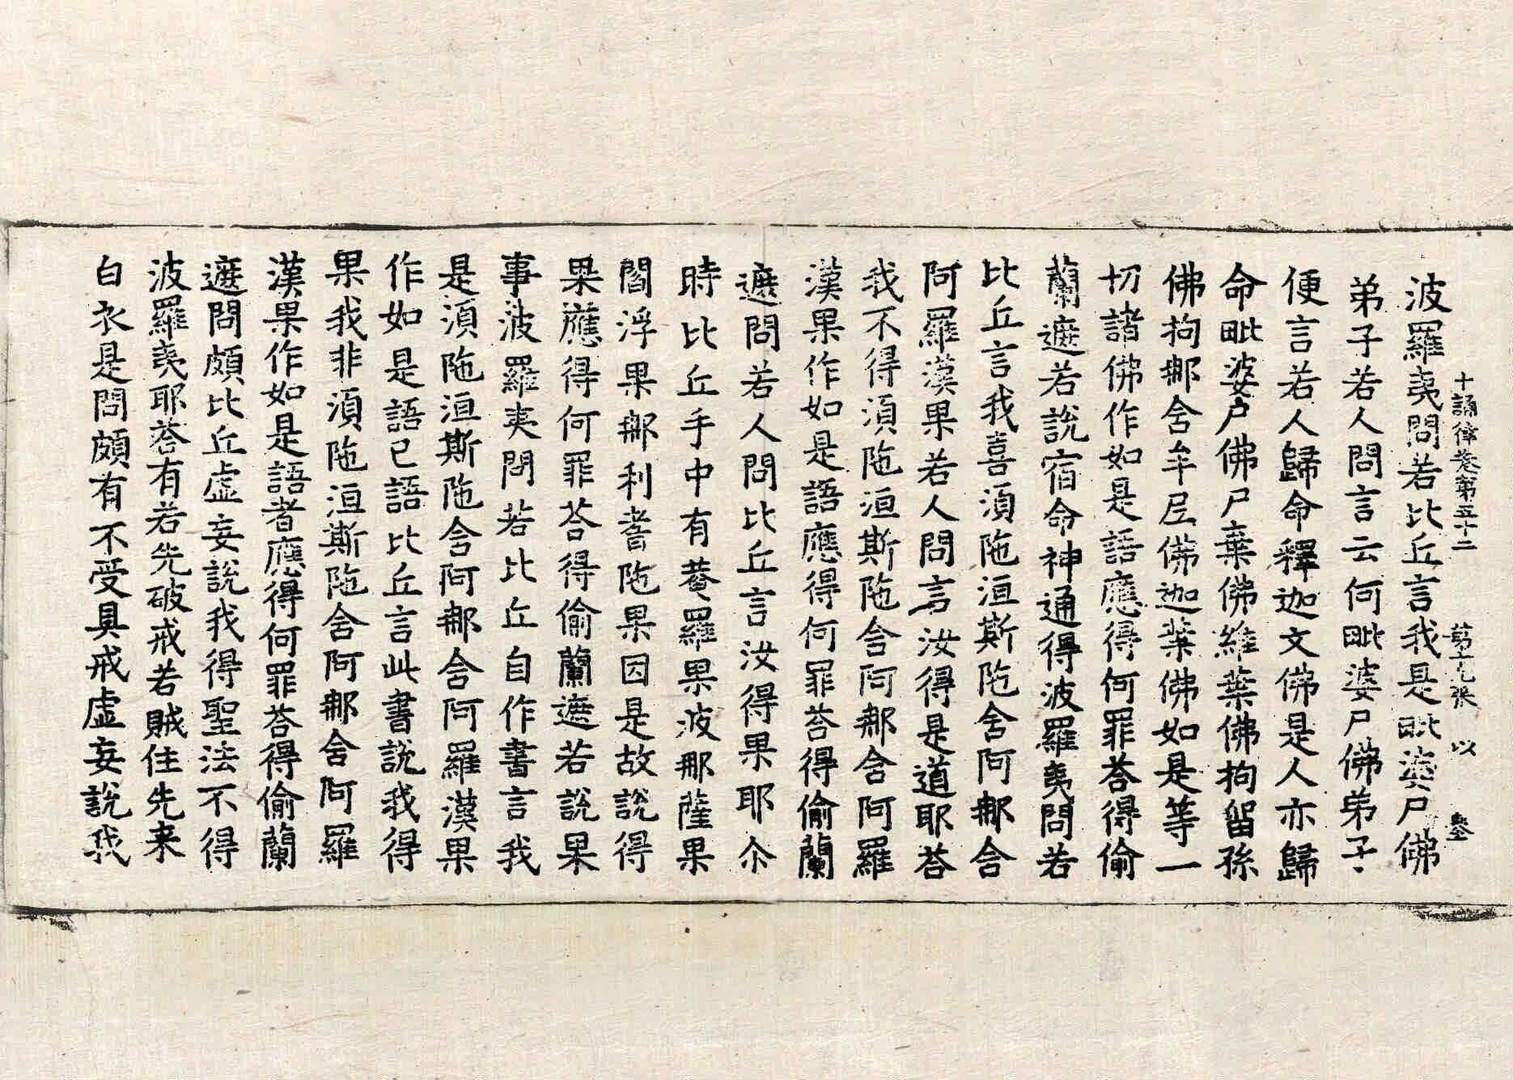 十誦律卷第五十二 第十九張 以
波羅夷問若比丘言我是毗婆尸佛
弟子若人問言云何毗婆尸佛弟子
便言若人歸命釋迦文佛是人亦歸
命毗婆尸佛尸棄佛維葉佛拘留孫
佛拘那舍牟尼佛迦葉佛如是等一
切諸佛作如是語應得何罪荅得偷
蘭遮若說宿命神通得波羅夷問若
比丘言我喜湏陁洹斯陁含阿那含
阿羅漢果若人問言汝得是道耶荅
我不得湏陁洹斯陁含阿那含阿羅
漢果作如是語應得何罪荅得偷蘭
遮問若人問比丘言汝得果耶尒
時比丘手中有菴羅果波那薩果
閻浮果那利耆陁果因是故說得
果應得何罪荅得偷蘭遮若說果
事波羅夷問若比丘自作書言我
是湏陁洹斯陁含阿那含阿羅漢果
作如是語已語比丘言此書說我得
果我非湏陁洹斯陁含阿那含阿羅
漢果作如是語者應得何罪荅得偷蘭
遮問頗比丘虛妄說我得聖法不得
波羅夷耶荅有若先破戒若賊住先来
白衣是問頗有不受具戒虛妄說我